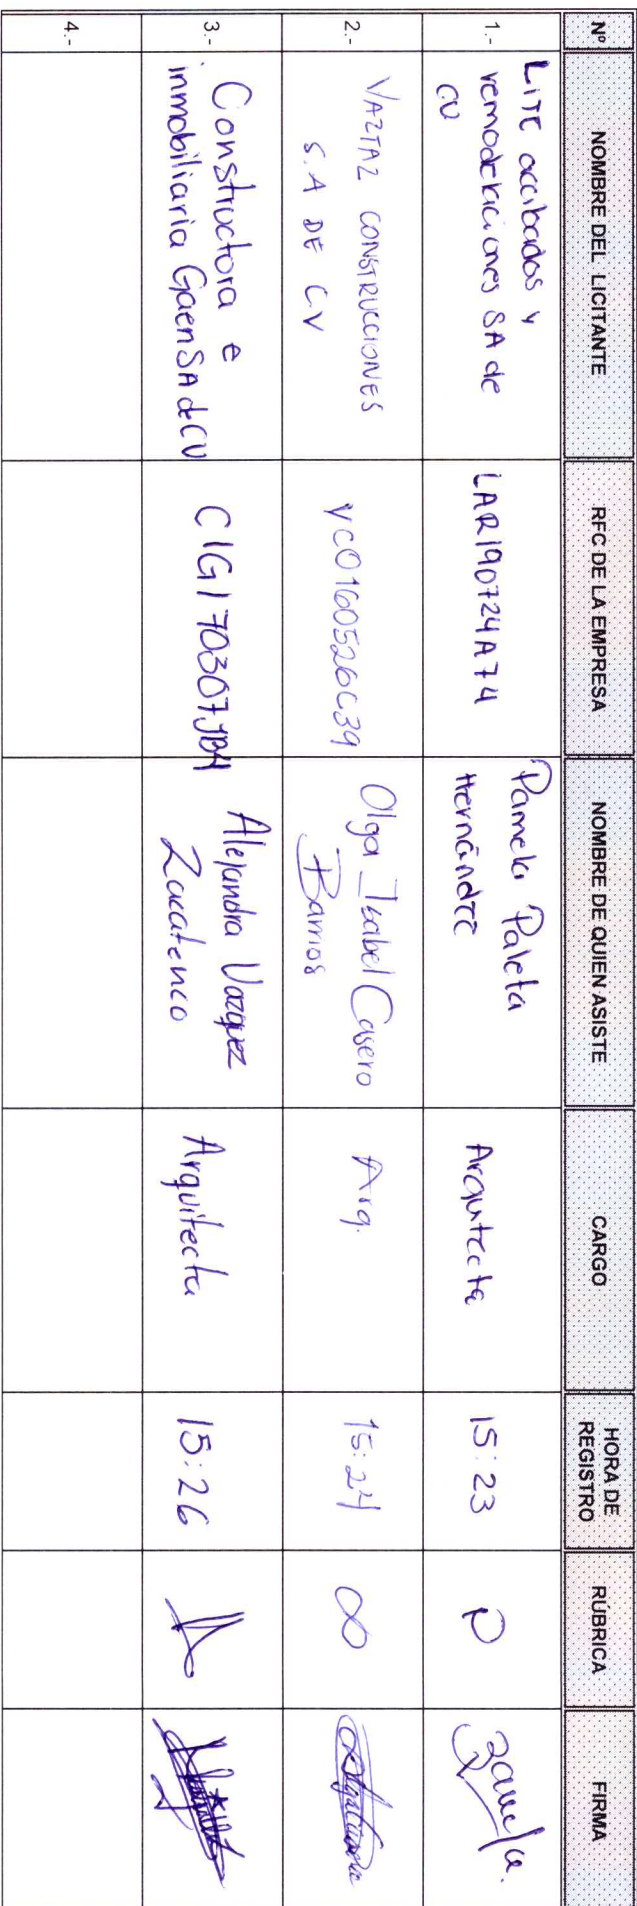 Nº
NOMBRE DEL LICITANTE
RFC DE LA EMPRESA
NOMBRE DE QUIEN ASISTE
CARGO
HORA DE
REGISTRO
RÚBRICA
FIRMA
1.-
LITE acabados y
remodelaciones SA de
CV
LAR190724A74
Pamela Paleta
Hernández
Arquitecta
15:23
2.-
VAZTAZ CONSTRUCCIONES
S.A DE CV
VCO160526C39
Olga Isabel Casero
Barrios
Arq.
15:24
3.-
Constructora e
inmobiliaria Gaen SA de CV
CIG170307JB4
Alejandra Vazquez
Zacatenco
Arquitecta
15:26
4.-